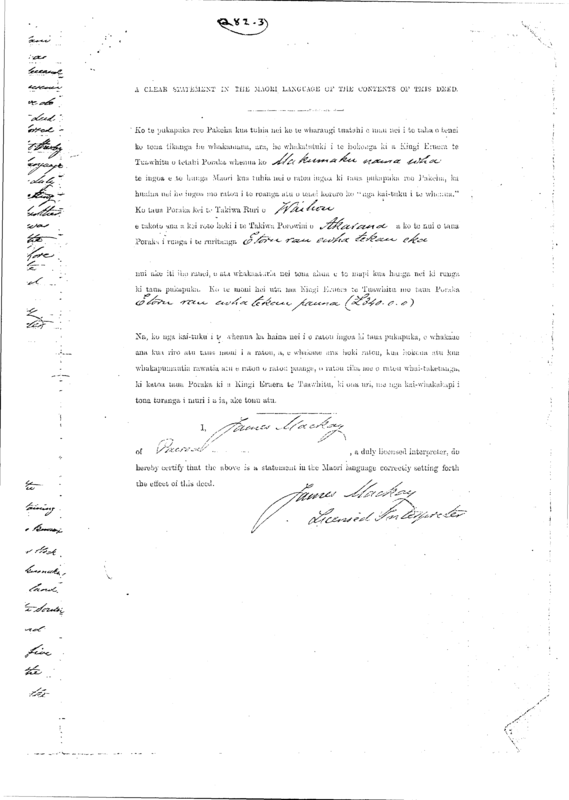 282.3
A CLEAR STATEMENT IN THE MAORI LANGUAGE OF THE CONTENTS OF THIS DEED.
Ko te pukapuka reo Pakeha kua tuhia nei ko te wharangi tuatahi o mua nei i te taha o tenei
ko tona tikanga he whakamana, ara, he whakatutuki i te hokonga ki a Kingi Eruera te
Tuawhitu o tetahi Poraka whenua ko
te ingoa e te hunga Maori kua tuhia nei o ratou ingoa ki taua pukapuka reo Pakeha, ka
huaina nei he ingoa mo ratou i to roanga atu o tenei korero ko "nga kai-tuku i te whenua."
Ko taua Poraka kei te Takiwa Ruri o Waihou
e takoto ana a kei roto hoki i te Takiwa Porowini o Akarana a ko te nui o taua
Poraka i runga i te ruritanga E toru rau ewha tekau eka
nui ake iti iho ranei, e ata whakaaturia nei tona ahua e te mapi kua hanga nei ki runga
ki taua pukapuka. Ko te moni hei utu ma Kingi Eruera te Tuawhitu mo taua Poraka
E toru rau ewha tekau pauna (£340.0.0)
Na, ko nga kai-tuku i te whenua ka haina nei i o ratou ingoa ki taua pukapuka, e whakaae
ana kua riro atu taua moni i a ratou, a, e whakaae ana hoki ratou, kua hokona atu kua
whakapumautia rawatia atu e ratou o ratou paanga, o ratou tika me o ratou whai-taketanga,
ki katoa taua Poraka ki a Kingi Eruera te Tuawhitu, ki ona uri, me nga kai-whakakapi i
tona turanga i muri i a ia, ake tonu atu.
I, James Mackay
of Paeroa, a duly licensed interpreter, do
hereby certify that the above is a statement in the Maori language correctly setting forth
the effect of this deed.
James Mackay
Licensed Interpreter